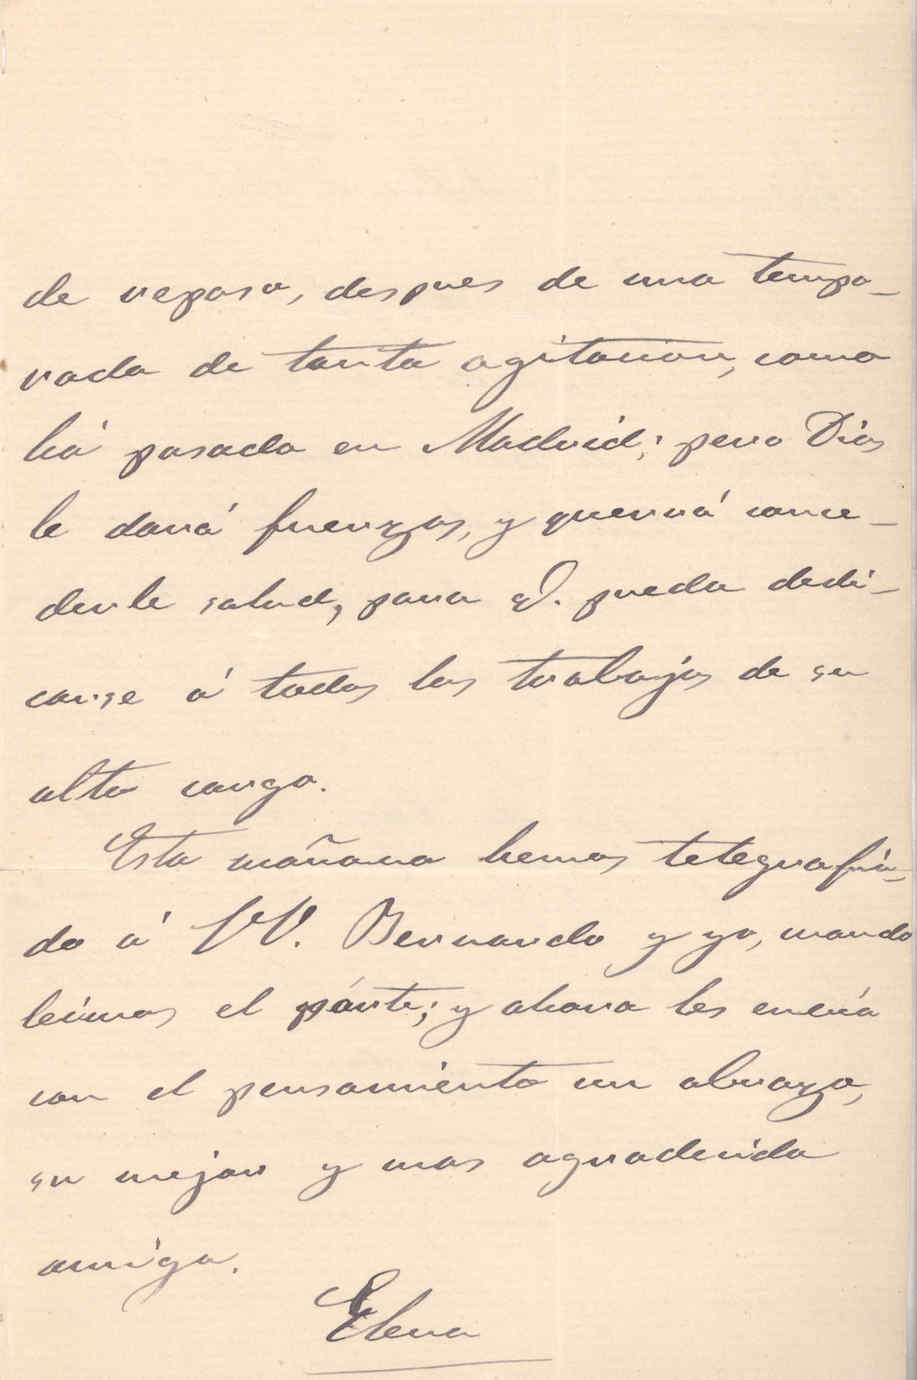 de reposo, despues de una tempo-
rada de tanta agitacion, como
há pasado en Madrid; pero Dios
le dará fuerzas, y querrá conce-
derle salud, para q. pueda dedi-
carse á todos los trabajos de su
alto cargo.
Esta mañana hemos telegrafia-
do á VV. Bernardo y yo, cuando
leimos el párte; y ahora les envia
con el pensamiento un abrazo,
su mejor y mas agradecida
amiga.
Elena